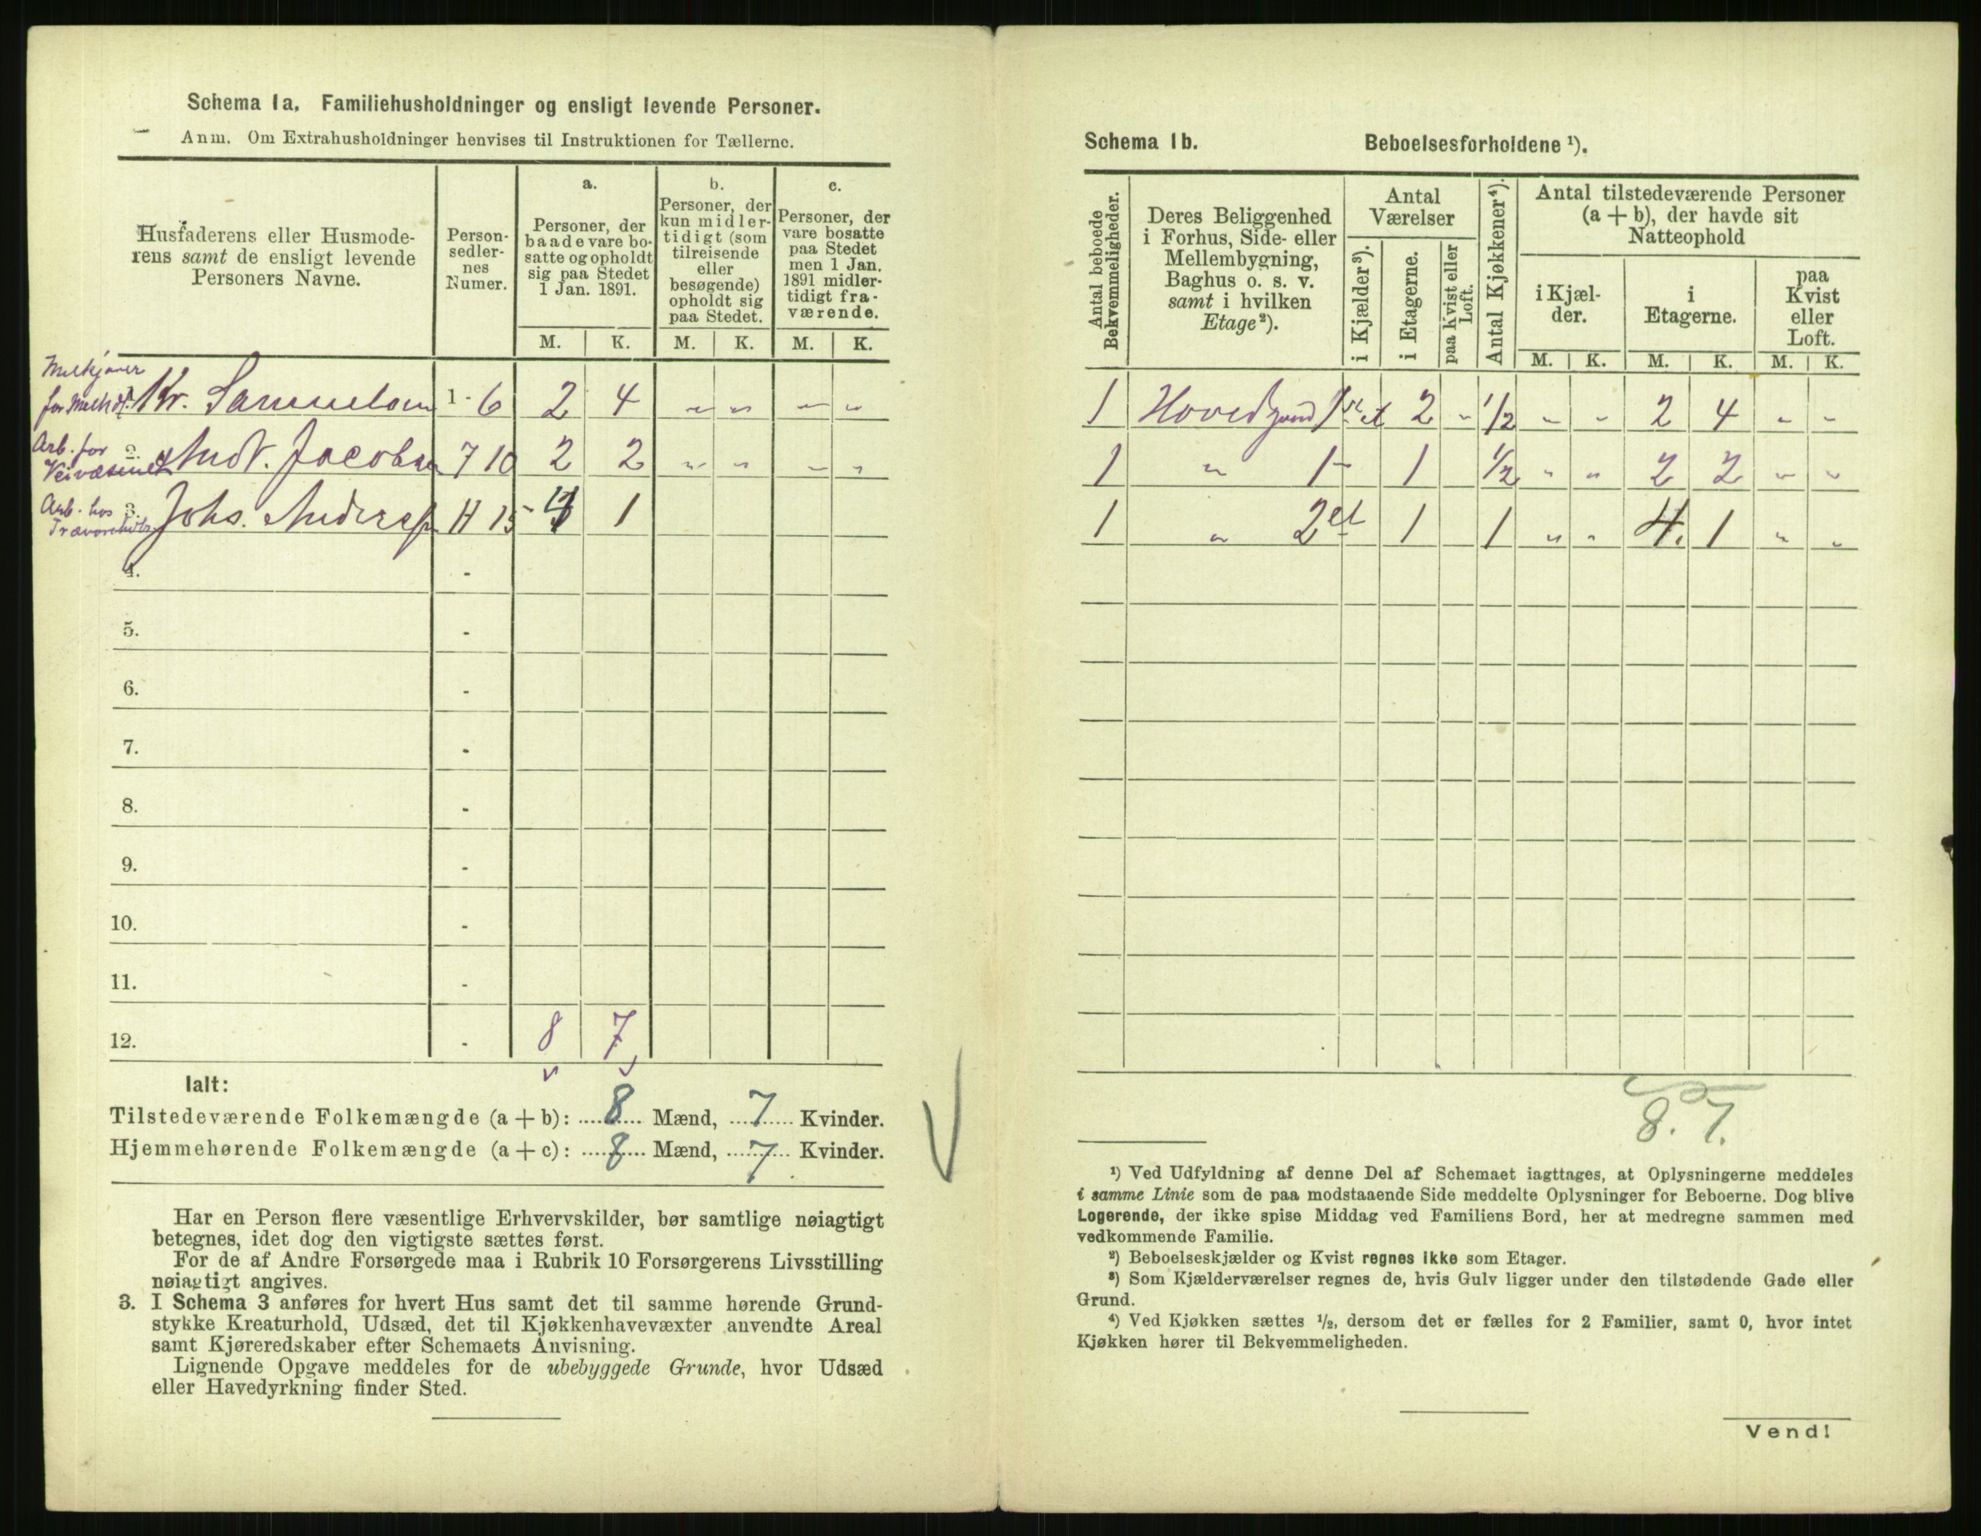 Schema 1a. Familiehusholdninger og ensligt levende Personer.
Anm. Om Extrahusholdninger henvises til Instruktionen for Tællerne.
Husfaderens eller Husmode-
rens samt de ensligt levende
Personers Navne.
Person-
sedler-
nes
Numer.
a.
Personer, der
baade vare bo-
satte og opholdt
sig paa Stedet
1 Jan. 1891.
b.
Personer, der
kun midler-
tidigt (som
tilreisende
eller
besøgende)
opholdt sig
paa Stedet.
c.
Personer, der
vare bosatte
paa Stedet
men 1 Jan.
1891 midler-
tidigt fra-
værende.
M. K. M. K. M. K.
Melkjører
for Melkh. Kr. Samuelsen 1 - 6 2 4 " " " "
Arb. for
Veivæsenet 2. Andr. Jacobsen 7 10 2 2 " " " "
Arb. hos 3. Johs. Anders 11 15 4 1
4. -
5. -
6. -
7. -
8. -
9. -
10. -
11. -
12. - 8 7
Ialt:
Tilstedeværende Folkemængde (a + b): 8 Mænd, 7 Kvinder.
Hjemmehørende Folkemængde (a + c): 8 Mænd, 7 Kvinder.
Har en Person flere væsentlige Erhvervskilder, bør samtlige nøiagtigt
betegnes, idet dog den vigtigste sættes først.
For de af Andre Forsørgede maa i Rubrik 10 Forsørgerens Livsstilling
nøiagtigt angives.
3. I Schema 3 anføres for hvert Hus samt det til samme hørende Grund-
stykke Kreaturhold, Udsæd, det til Kjøkkenhavevæxter anvendte Areal
samt Kjøreredskaber efter Schemaets Anvisning.
Lignende Opgave meddeles for de ubebyggede Grunde, hvor Udsæd
eller Havedyrkning finder Sted.
Schema 1b. Beboelsesforholdene ¹).
Antal beboede
Bekvemmeligheder.
Deres Beliggenhed
i Forhus, Side- eller
Mellembygning,
Baghus o. s. v.
samt i hvilken
Etage²).
Antal
Værelser
i Kjælder³).
i Etagerne.
paa Kvist eller
Loft.
Antal Kjøkkener⁴).
Antal tilstedeværende Personer
(a + b), der havde sit
Natteophold
i Kjæl-
der.
i
Etagerne.
paa
Kvist
eller
Loft.
M. K. M. K. M. K.
1 Hovedbygnd 1ste et 2 " 1/2 " " 2 4 " "
1 " 1 - 1 1/2 " " 2 2 " "
1 " 2 et 1 1 " " 4. 1 " "
8. 7.
¹) Ved Udfyldning af denne Del af Schemaet iagttages, at Oplysningerne meddeles
i samme Linie som de paa modstaaende Side meddelte Oplysninger for Beboerne. Dog blive
Logerende, der ikke spise Middag ved Familiens Bord, her at medregne sammen med
vedkommende Familie.
²) Beboelseskjælder og Kvist regnes ikke som Etager.
³) Som Kjælderværelser regnes de, hvis Gulv ligger under den tilstødende Gade eller
Grund.
⁴) Ved Kjøkken sættes ½, dersom det er fælles for 2 Familier, samt 0, hvor intet
Kjøkken hører til Bekvemmeligheden.
Vend!